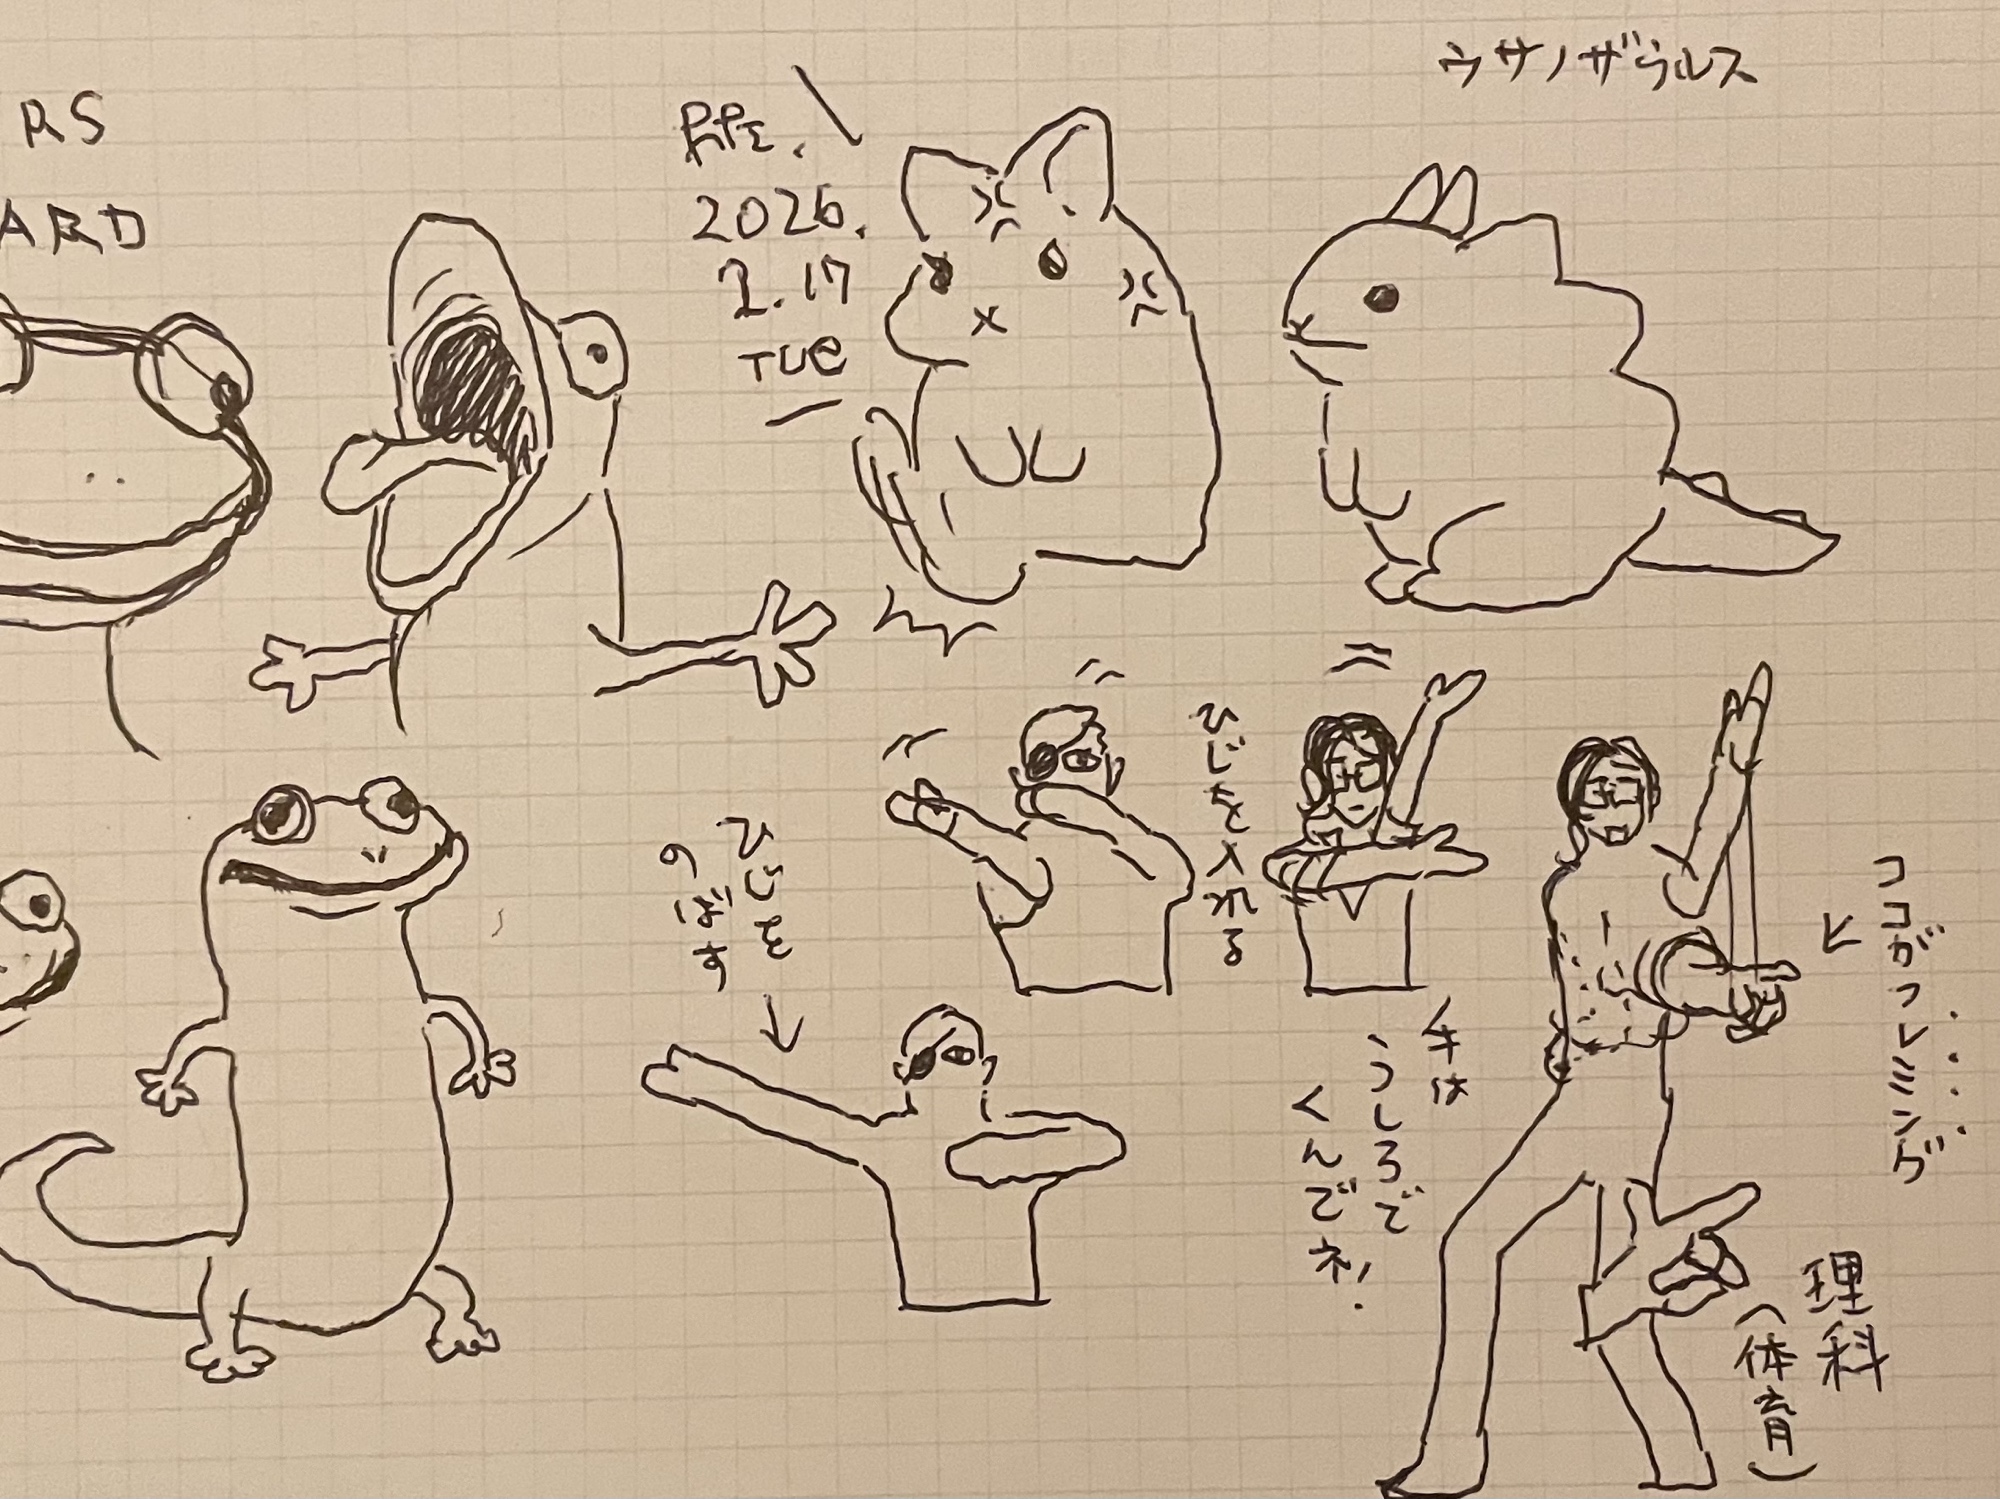 RS
ARD
2026.
2.17
TUE
ウサノザウルス
ひじを入れる
ひじを
のばす
手は
うしろで
くんでネ!
ココがフレミング
理科
(体育)